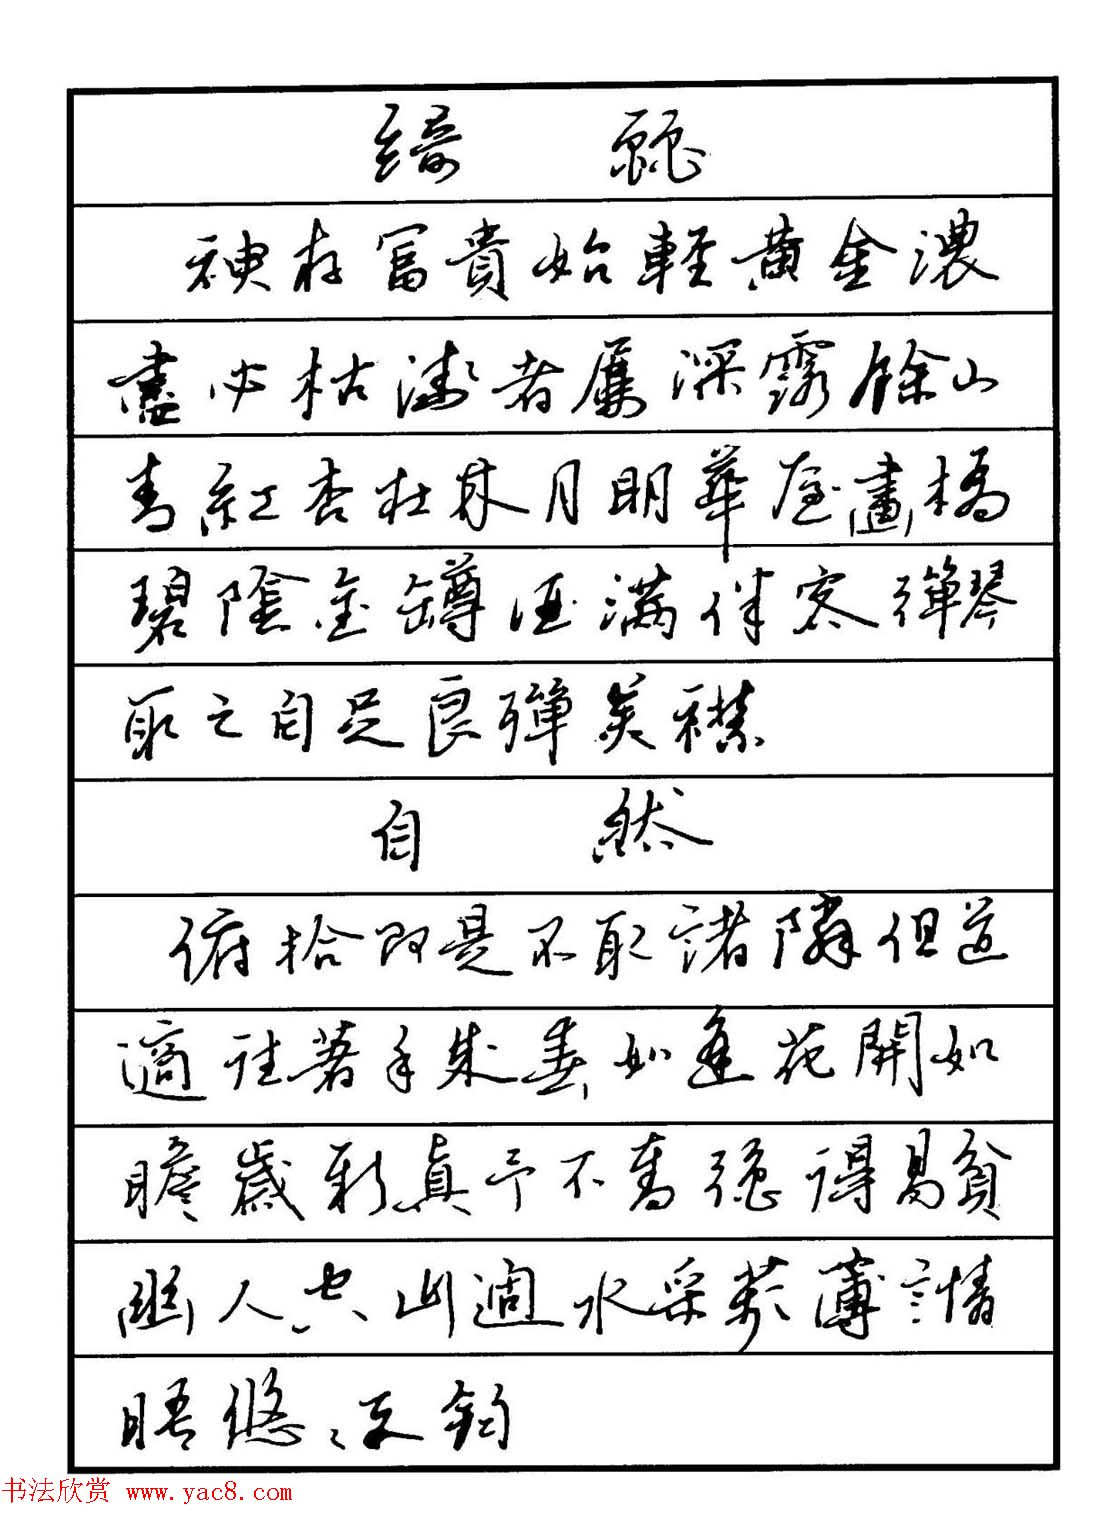 綺麗
神存富貴始輕黃金濃
盡必枯淺者屢深露餘山
青紅杏在林月明華屋畫橋
碧陰金罇酒滿伴客彈琴
取之自足良殫美襟
自然
俯拾即是不取諸隣但道
適往著手成春如逢花開如
瞻歲新真予不奪強得易貧
幽人空山過水采蘋薄言情
晤悠〻天鈞
书法欣赏 www.yac8.com